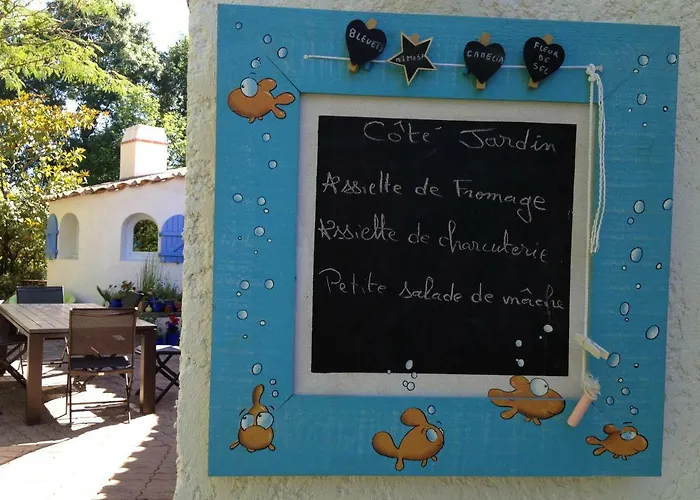 BLEUET
MIMOSA
CAMELIA
FLEUR
DE
SEL
Côté Jardin
Assiette de Fromage
Assiette de charcuterie
Petite salade de mâche